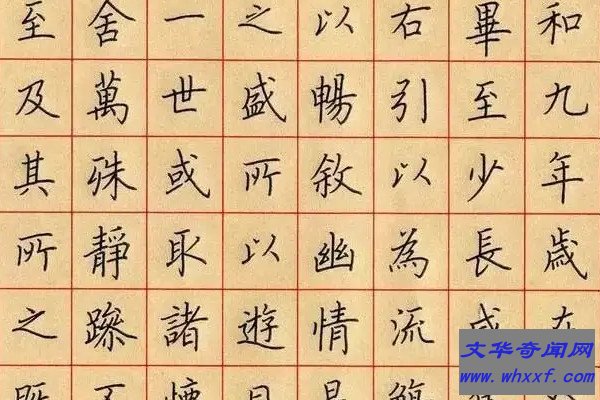 和九年歲在
畢至少長咸
右引以為流
以暢敘幽情
之盛所以遊
一世或取諸
舍萬殊靜躁
至及其所之
文华奇闻网
www.whxxf.com